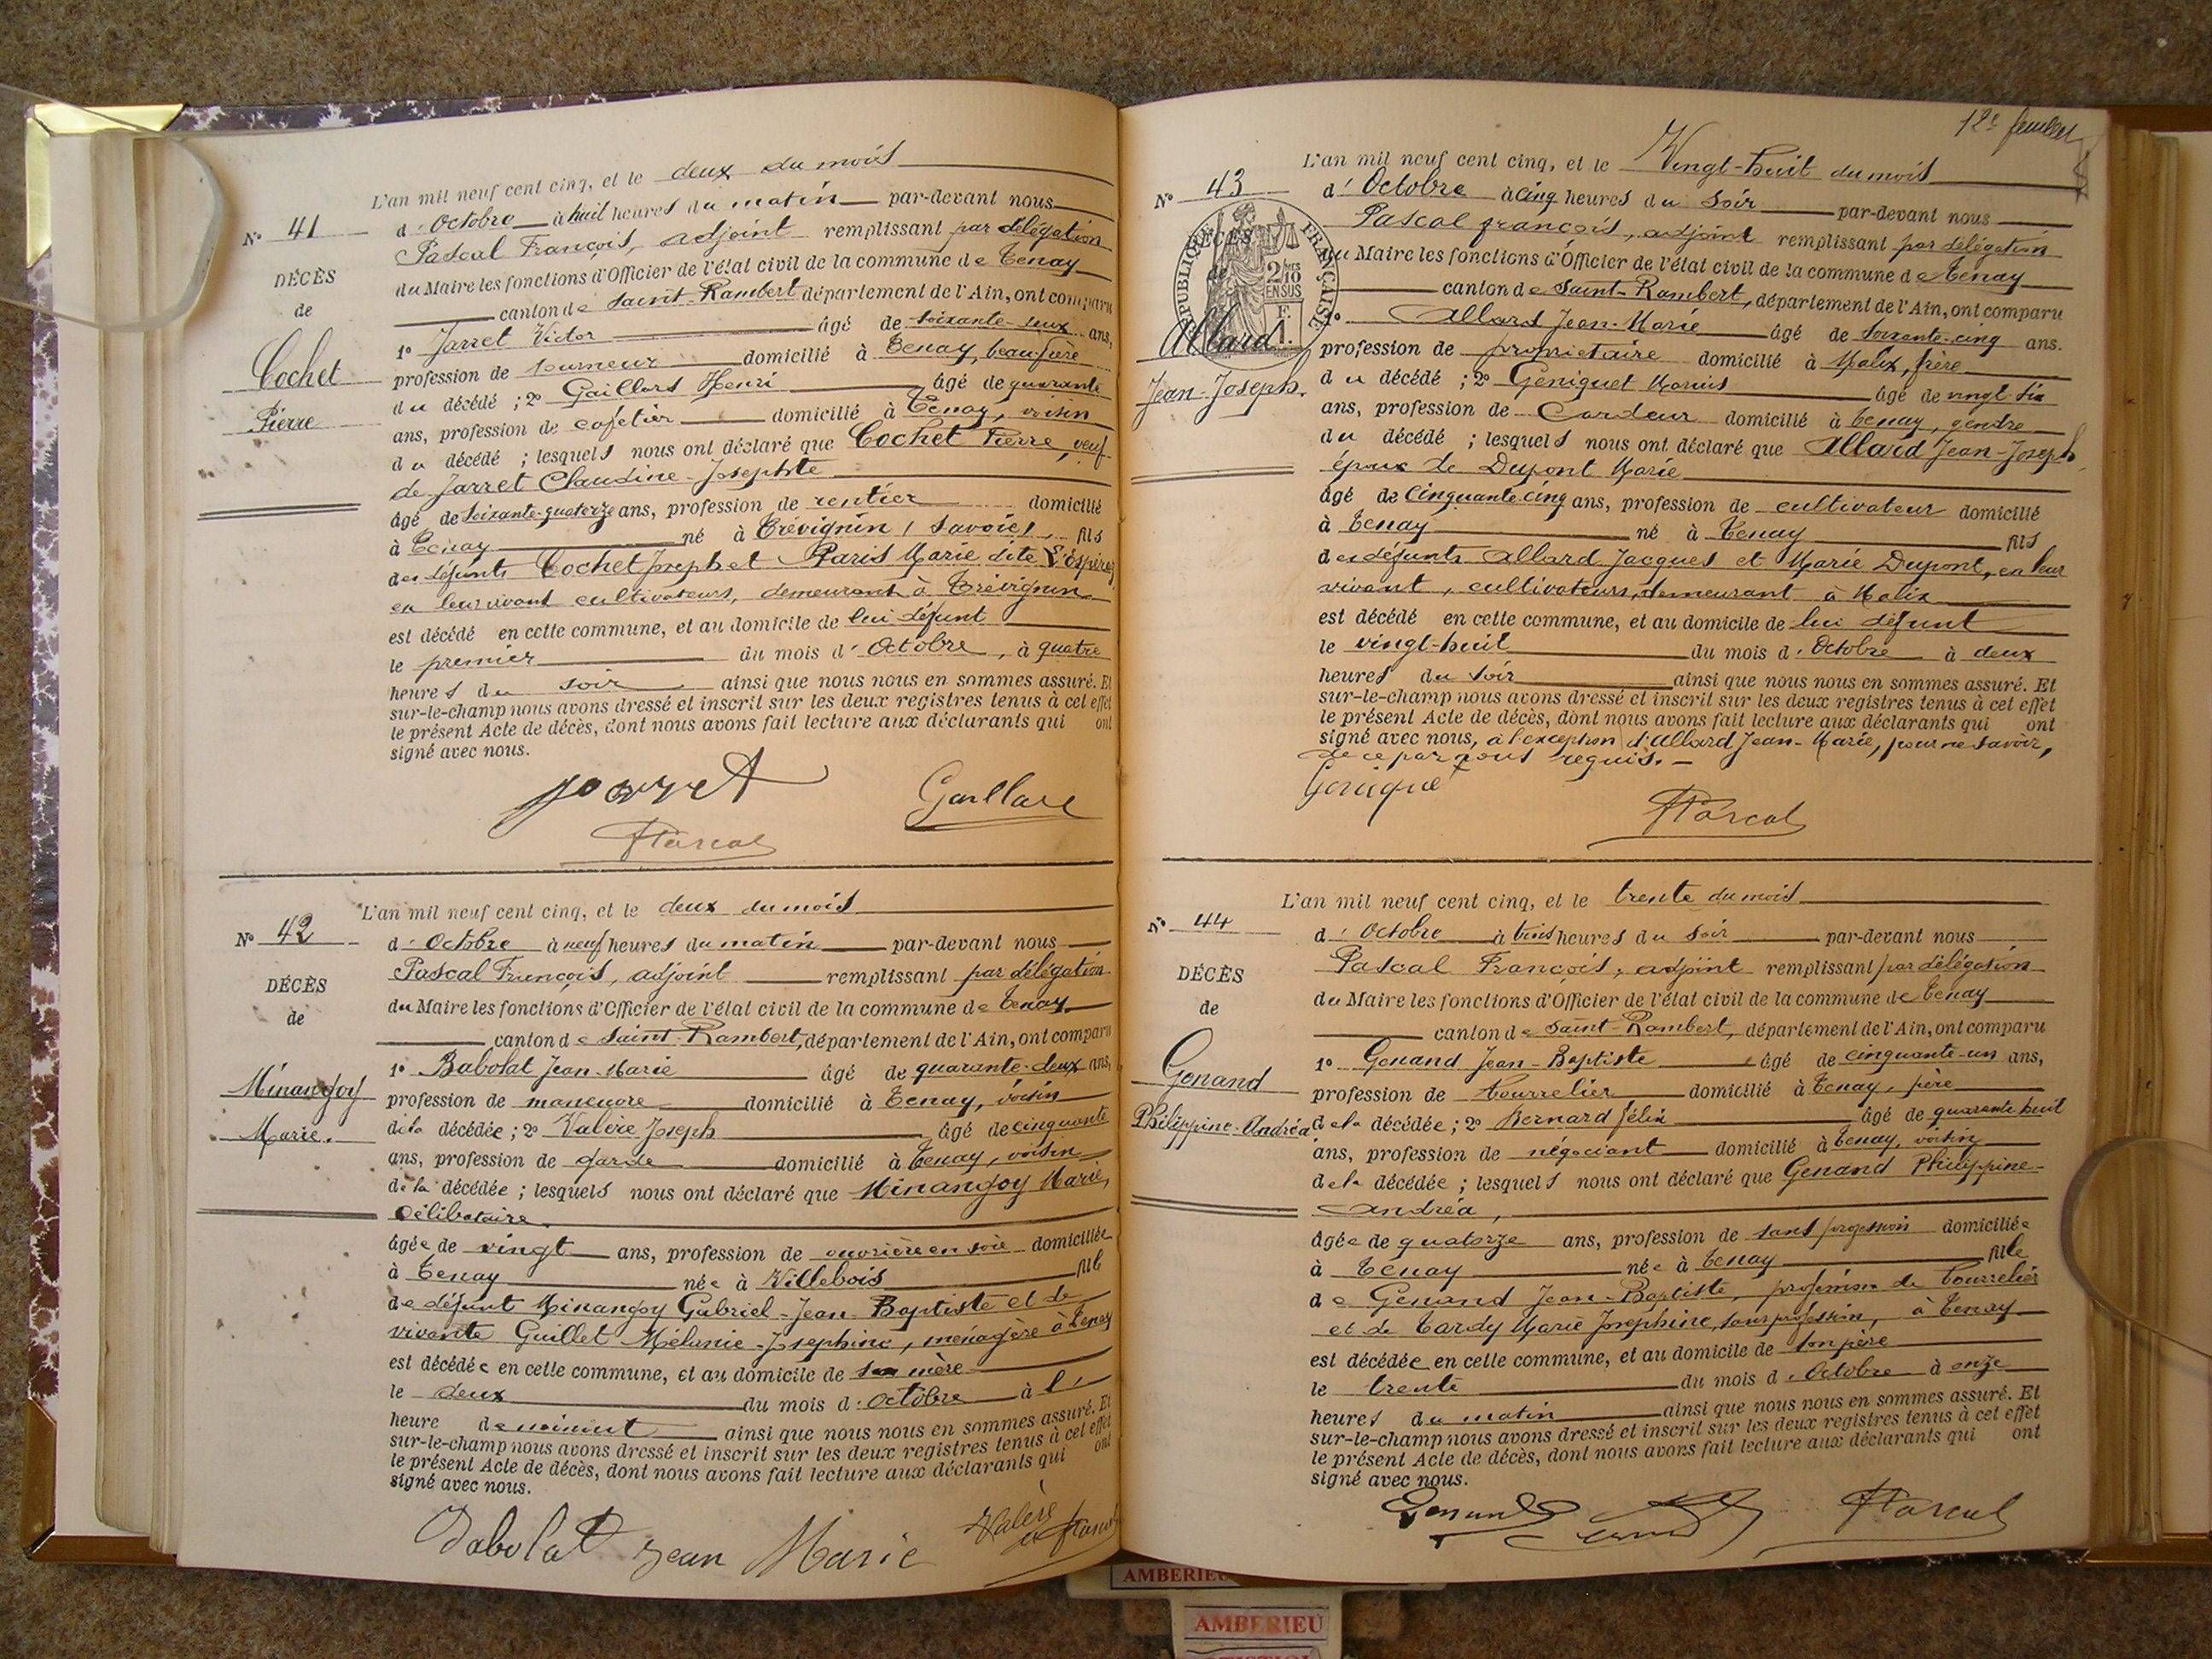 L'an mil neuf cent cinq, et le deux du mois
N° 41
d'Octobre à huit heures du matin par-devant nous
Pascal François, adjoint remplissant par délégation
DÉCÈS
du Maire les fonctions d'Officier de l'état civil de la commune de Tenay
de
canton de Saint-Rambert département de l'Ain, ont comparu
1° Jarret Victor âgé de soixante-deux ans,
Cochet
profession de tourneur domicilié à Tenay, beau frère
du décédé ; 2° Gaillard Henri âgé de quarante
Pierre
ans, profession de cafetier domicilié à Tenay, voisin
du décédé ; lesquels nous ont déclaré que Cochet Pierre, veuf
de Jarret Claudine Josephte
âgé de soixante-quatorze ans, profession de rentier domicilié
à Tenay né à Trévignin (Savoie) fils
des défunts Cochet Joseph et Paris Marie dite
en leur vivant cultivateurs, demeurant à Trévignin
est décédé en cette commune, et au domicile de lui défunt
le premier du mois d'Octobre, à quatre
heures du soir ainsi que nous nous en sommes assuré. Et
sur-le-champ nous avons dressé et inscrit sur les deux registres tenus à cet effet
le présent Acte de décès, dont nous avons fait lecture aux déclarants qui ont
signé avec nous.
Jarret Gaillard
Pascal
L'an mil neuf cent cinq, et le deux du mois
N° 42
d'Octobre à neuf heures du matin par-devant nous
Pascal François, adjoint remplissant par délégation
DÉCÈS
du Maire les fonctions d'Officier de l'état civil de la commune de Tenay
de
canton de Saint-Rambert, département de l'Ain, ont comparu
1° Babolat Jean-Marie âgé de quarante-deux ans,
Minangoy
profession de manœuvre domicilié à Tenay, voisin
Marie.
de la décédée ; 2° Valère Joseph âgé de cinquante
ans, profession de garde domicilié à Tenay, voisin
de la décédée ; lesquels nous ont déclaré que Minangoy Marie,
Célibataire
âgée de vingt ans, profession de ouvrière en soie domiciliée
à Tenay née à Villebois fille
de défunt Minangoy Gabriel-Jean-Baptiste et de
vivante Guillet Mélanie-Josephine, ménagère à Tenay
est décédée en cette commune, et au domicile de sa mère
le deux du mois d'Octobre à l'
heure de minuit ainsi que nous nous en sommes assuré. Et
sur-le-champ nous avons dressé et inscrit sur les deux registres tenus à cet effet
le présent Acte de décès, dont nous avons fait lecture aux déclarants qui ont
signé avec nous.
Babolat Jean Marie Valère
Pascal
12e feuillet
L'an mil neuf cent cinq, et le Vingt-huit du mois
N° 43
d'Octobre à cinq heures du soir par-devant nous
Pascal françois, adjoint remplissant par délégation
DÉCÈS
RÉPUBLIQUE FRANÇAISE
du Maire les fonctions d'Officier de l'état civil de la commune de Tenay
de
2/10 EN SUS
canton de Saint-Rambert, département de l'Ain, ont comparu
1° Allard Jean-Marie âgé de soixante-cinq ans.
Allard
profession de propriétaire domicilié à Malix, frère
Jean-Joseph.
du décédé ; 2° Geniquet Marius âgé de vingt-six
ans, profession de Cardeur domicilié à Tenay, gendre
du décédé ; lesquels nous ont déclaré que Allard Jean-Joseph,
époux de Dupont Marie
âgé de cinquante-cinq ans, profession de cultivateur domicilié
à Tenay né à Tenay fils
des défunts Allard Jacques et Marie Dupont, en leur
vivant, cultivateurs, demeurant à Malix
est décédé en cette commune, et au domicile de lui défunt
le vingt-huit du mois d'Octobre à deux
heures du soir ainsi que nous nous en sommes assuré. Et
sur-le-champ nous avons dressé et inscrit sur les deux registres tenus à cet effet
le présent Acte de décès, dont nous avons fait lecture aux déclarants qui ont
signé avec nous, à l'exception d'Allard Jean-Marie, pour ne savoir,
de ce par nous requis.
Geniquet
Pascal
L'an mil neuf cent cinq, et le trente du mois
N° 44
d'Octobre à trois heures du soir par-devant nous
Pascal François, adjoint remplissant par délégation
DÉCÈS
du Maire les fonctions d'Officier de l'état civil de la commune de Tenay
de
canton de Saint-Rambert, département de l'Ain, ont comparu
1° Genand Jean-Baptiste âgé de cinquante-un ans,
Genand
profession de bourrelier domicilié à Tenay, père
Philippine-Andréa
de la décédée ; 2° Bernard félix âgé de quarante huit
ans, profession de négociant domicilié à Tenay, voisin
de la décédée ; lesquels nous ont déclaré que Genand Philippine-
Andréa,
âgée de quatorze ans, profession de sans profession domiciliée
à Tenay née à Tenay fille
de Genand Jean-Baptiste, profession de bourrelier
et de Tardy Marie Josephine, sans profession, à Tenay
est décédée en cette commune, et au domicile de son père
le trente du mois d'Octobre à onze
heures du matin ainsi que nous nous en sommes assuré. Et
sur-le-champ nous avons dressé et inscrit sur les deux registres tenus à cet effet
le présent Acte de décès, dont nous avons fait lecture aux déclarants qui ont
signé avec nous.
Genand Pascal
AMBERIEU
AMBERIEU